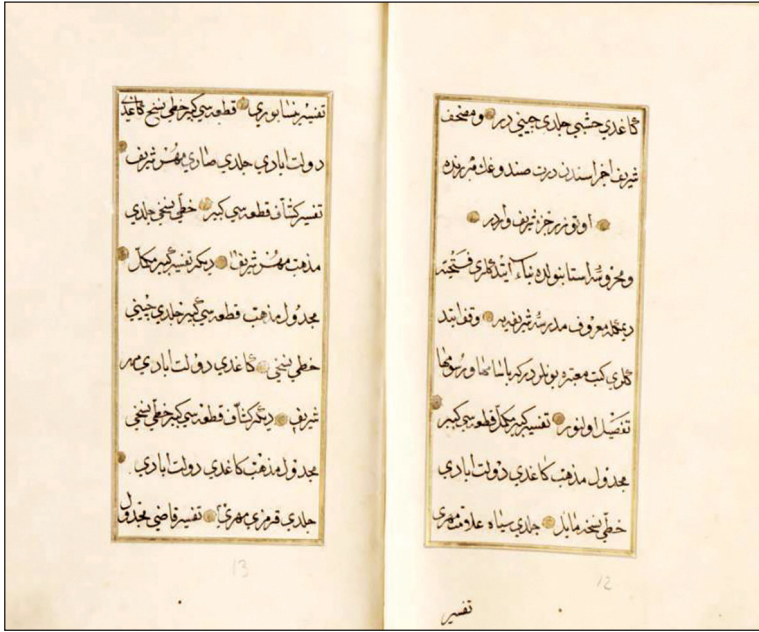 كاغدي حشبي جلدي چيني در ومصحف
شريف اجزاسندن درت صندوغك هر برنده
اوتوزبر جزء شريف واردر
ومحروسه استانبولده بناء ايتدكلري فتحيه
ديمكله معروف مدرسه شريفه يه وقف ايتد
كلري كتب معتبره بونلردركه باساميها ورسومها
تفصيل اولنور تفسير كبير مكمل قطعه سي كبير
مجدول مذهب كاغدي دولت ابادي
خطي نسخه مايل جلدي سياه مهري
تفسير
12
تفسير نيشابوري قطعه سي كبير خطي نسخ كاغدي
دولت ابادي جلدي صاري مهر شريف
تفسير كشاف قطعه سي كبير خطي نسخي جلدي
مذهب مهر شريف ديكر تفسير كبير مكمل
مجدول مذهب قطعه سي كبير جلدي چيني
خطي نسخي كاغدي دولت ابادي مهر
شريف ديكر كشاف قطعه سي كبير خطي نسخي
مجدول مذهب كاغدي دولت ابادي
جلدي قرمزي مهري تفسير قاضي مجدول
13